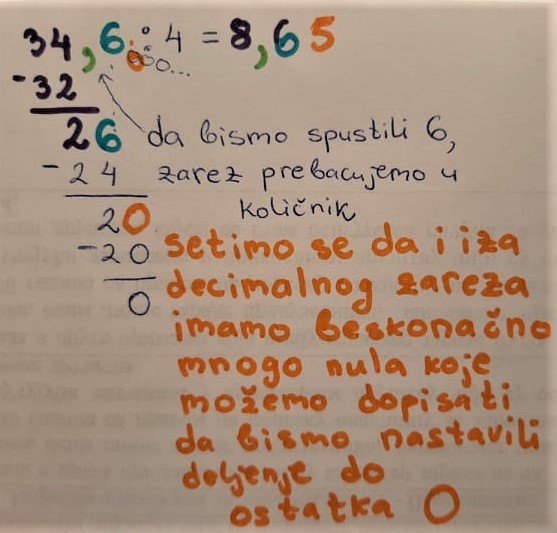 34,6 : 4 = 8,65
000...
-32
26
da bismo spustili 6,
-24
zarez prebacujemo u
količnik
20
-20
0
setimo se da i iza
decimalnog zareza
imamo beskonačno
mnogo nula koje
možemo dopisati
da bismo nastavili
deljenje do
ostatka 0